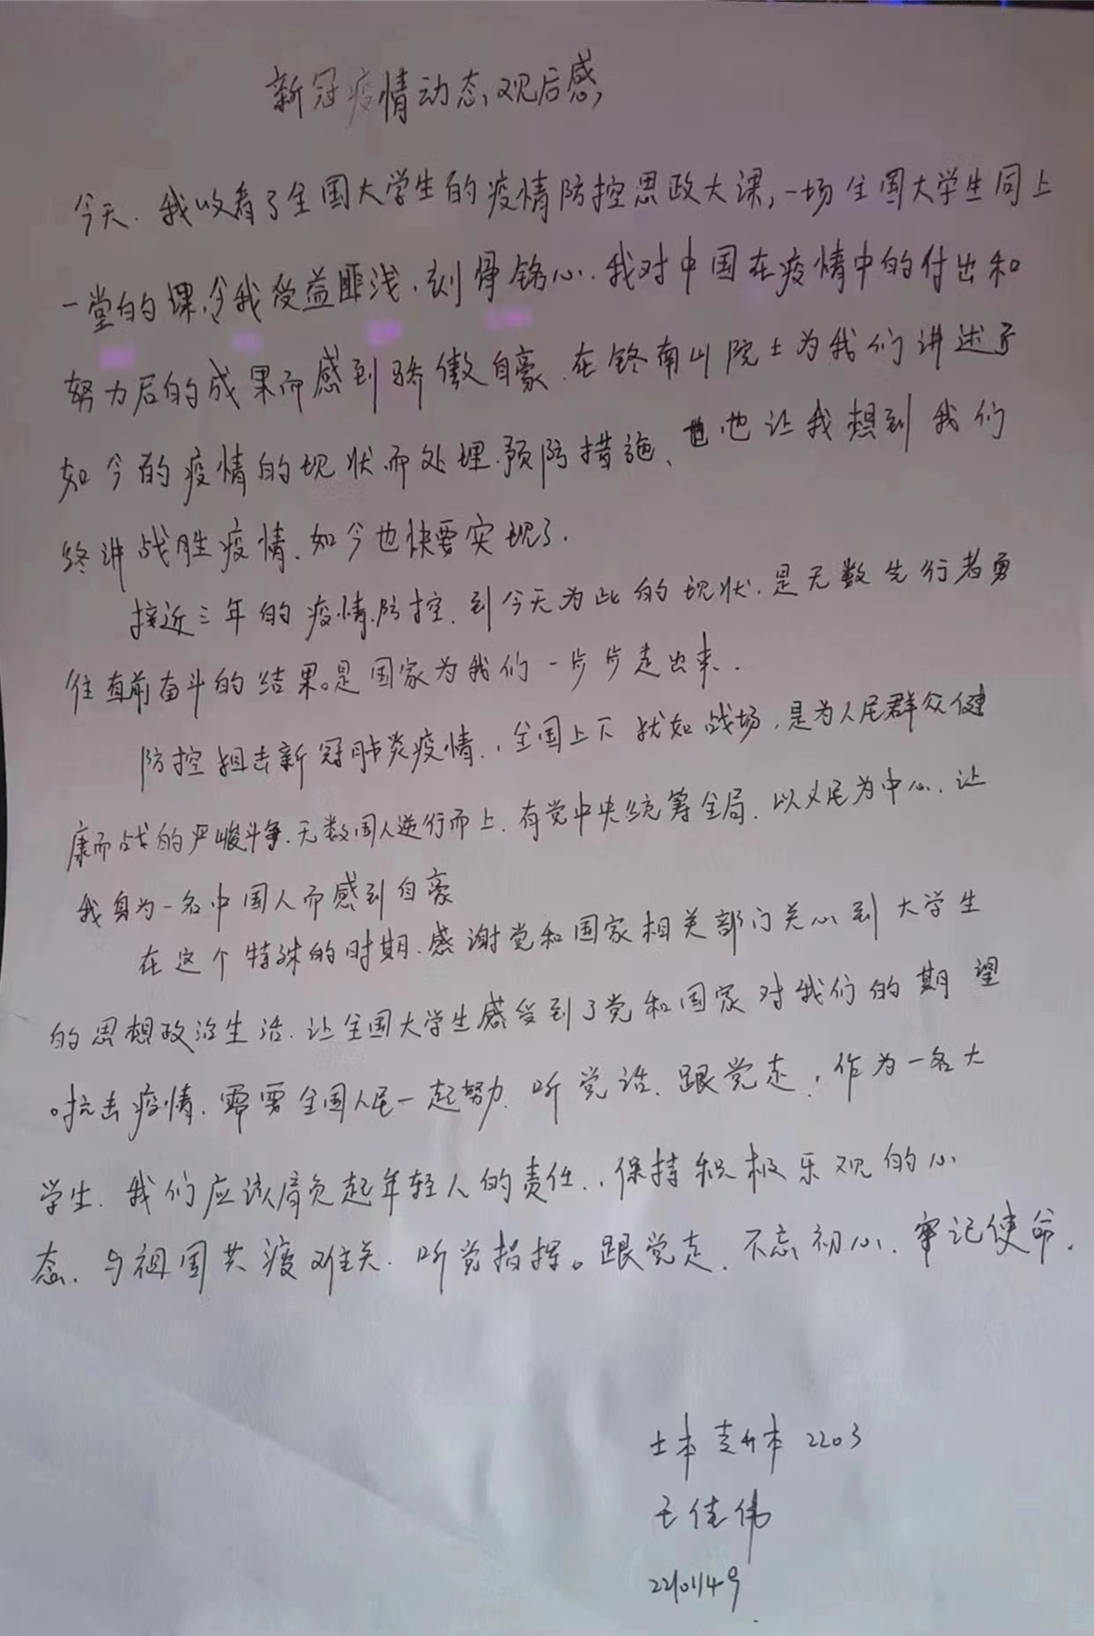 新冠疫情动态观后感
今天.我收看了全国大学生的疫情防控思政大课,一场全国大学生同上
一堂的课,令我受益匪浅,刻骨铭心.我对中国在疫情中的付出和
努力后的成果而感到骄傲自豪.在钟南山院士为我们讲述了
如今的疫情的现状而处理.预防措施、也让我想到我们
终讲战胜疫情.如今也快要实现了.
接近三年的疫情防控.到今天为此的现状.是无数先行者勇
往直前奋斗的结果。是国家为我们一步步走出来.
防控狙击新冠肺炎疫情.,全国上下犹如战场,是为人民群众健
康而战的严峻斗争.无数国人逆行而上.有党中央统筹全局.以人民为中心.让
我身为一名中国人而感到自豪
在这个特殊的时期.感谢党和国家相关部门关心到大学生
的思想政治生活.让全国大学生感受到了党和国家对我们的期望
。抗击疫情.需要全国人民一起努力.听党话、跟党走,作为一名大
学生.我们应该肩负起年轻人的责任.,保持积极乐观的心
态.与祖国共渡难关.听党指挥。跟党走.不忘初心.牢记使命.
土本专升本2203
王佳伟
22101149